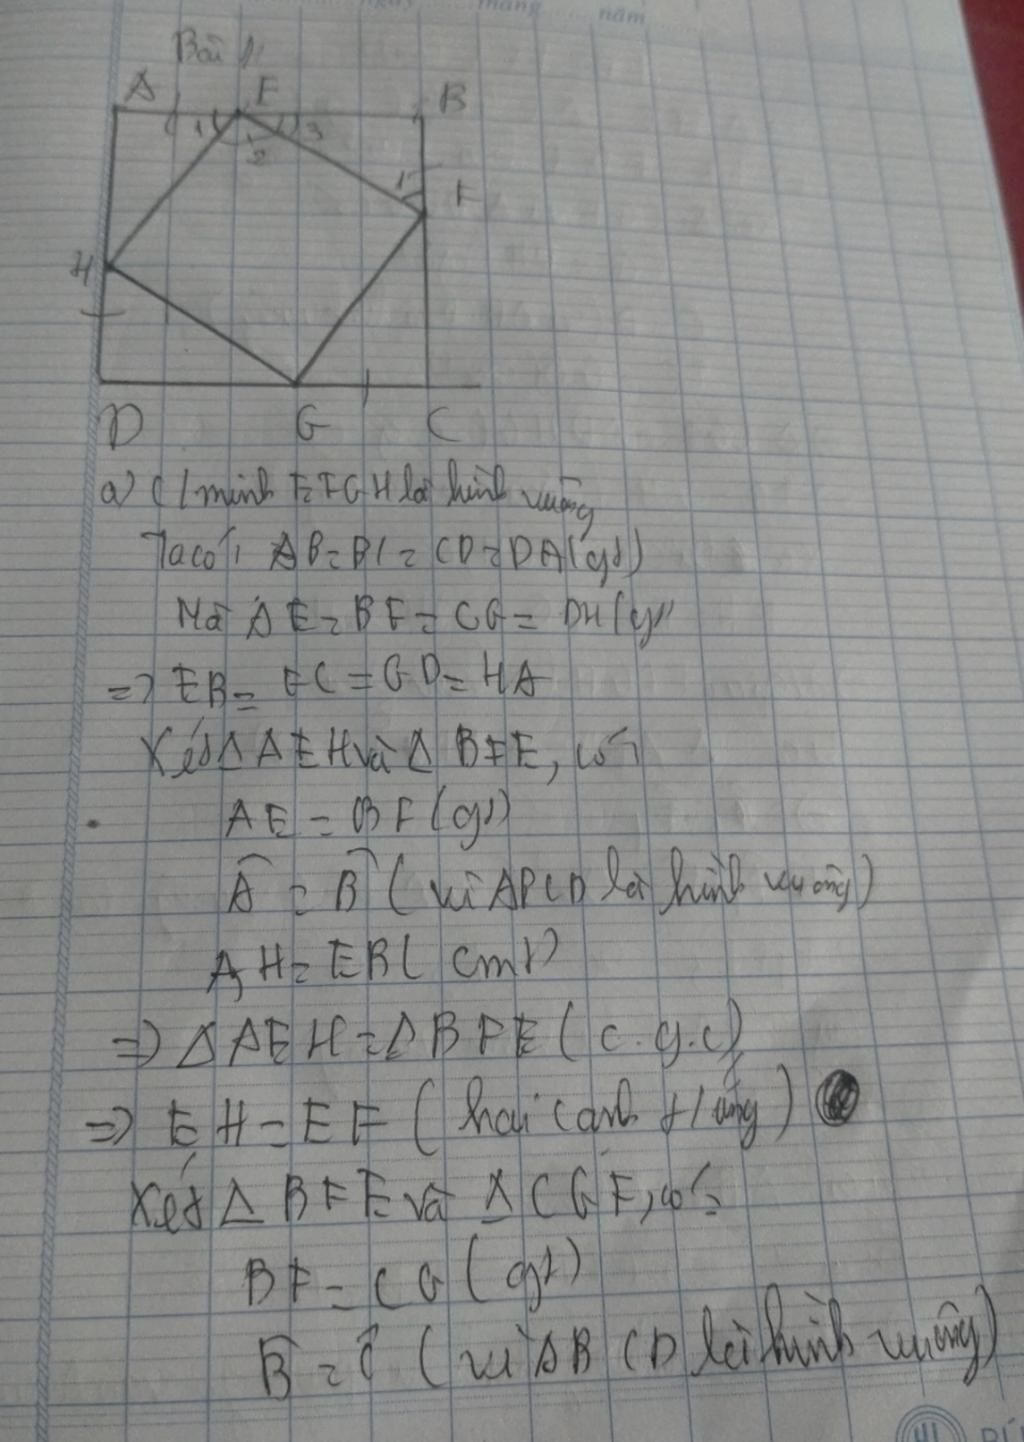 năm
Bài 1:
A E B
1 2 3
1 F
H
D G C
a) C/minh EFGH là hình vuông
Ta có: AB = BC = CD = DA (gt)
Mà AE = BF = CG = DH (gt)
=> EB = FC = GD = HA
Xét Δ AEH và Δ BFE, có:
AE = BF (gt)
Â = B̂ (vì ABCD là hình vuông)
AH = EB (cmt)
=> Δ AEH = Δ BFE (c.g.c)
=> EH = EF (hai cạnh t/ứng)
Xét Δ BFE và Δ CGF, có:
BF = CG (gt)
B̂ = Ĉ (vì ABCD là hình vuông)
41